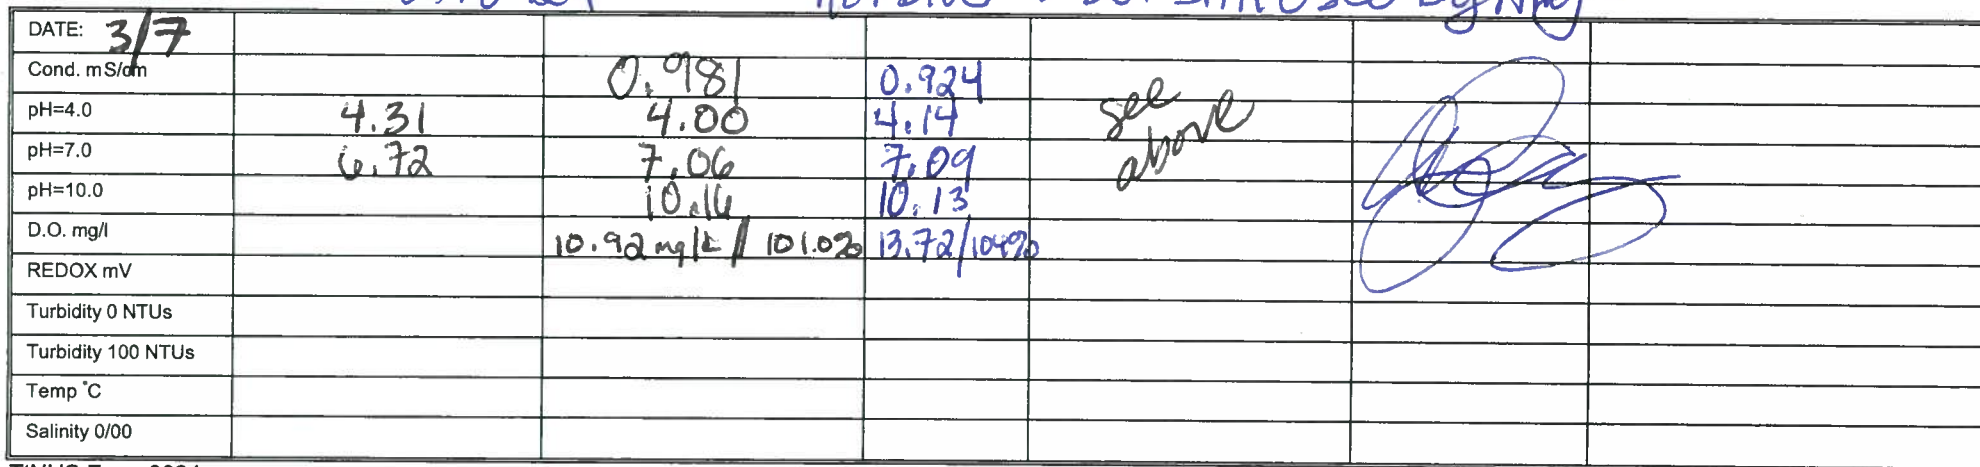 DATE: 3/7
Cond. mS/cm 0.981 0.924
pH=4.0 4.31 4.00 4.14 see
pH=7.0 6.72 7.06 7.09 above
pH=10.0 10.16 10.13
D.O. mg/l 10.92 mg/L / 101.0% 13.72/104%
REDOX mV
Turbidity 0 NTUs
Turbidity 100 NTUs
Temp °C
Salinity 0/00